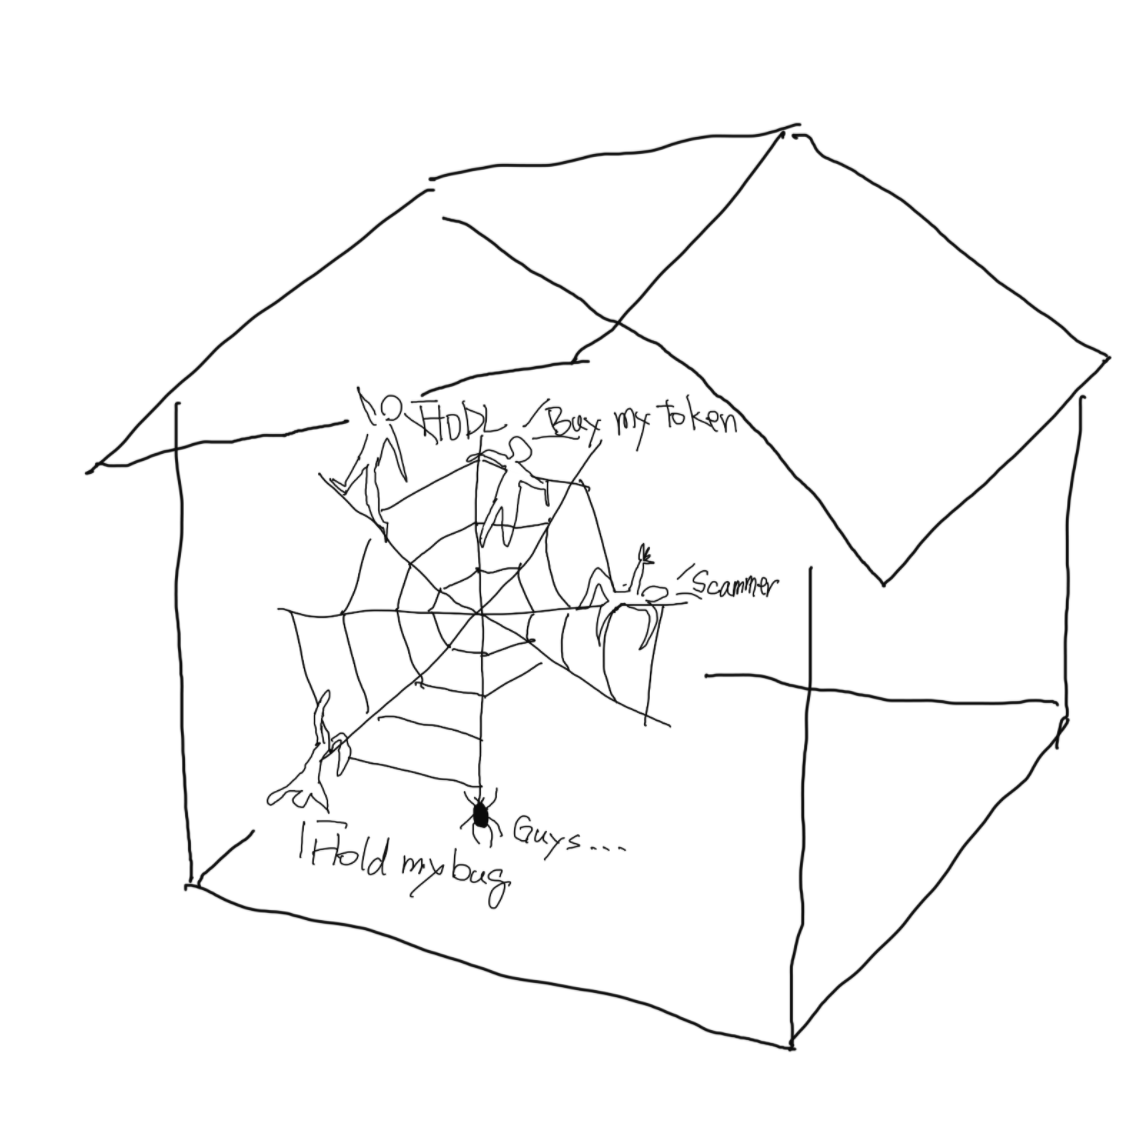 HODL
Buy my token
Scammer
Guys...
Hold my bug